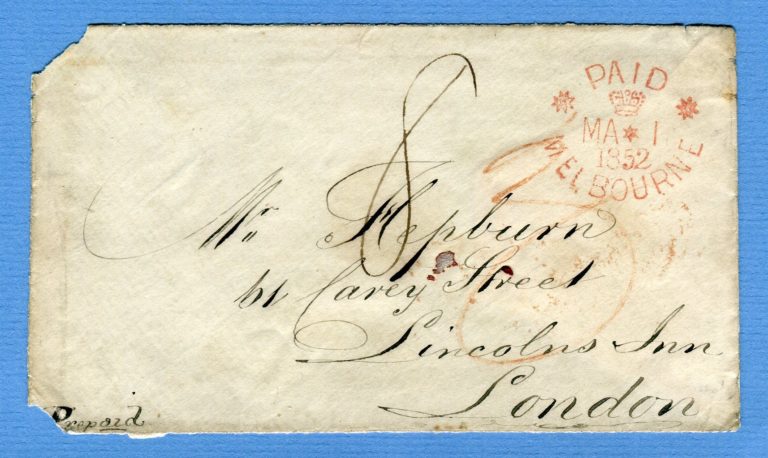 PAID
MA 1
1852
MELBOURNE
8
Mr Hepburn
61 Carey Street
Lincolns Inn
London
Prepaid